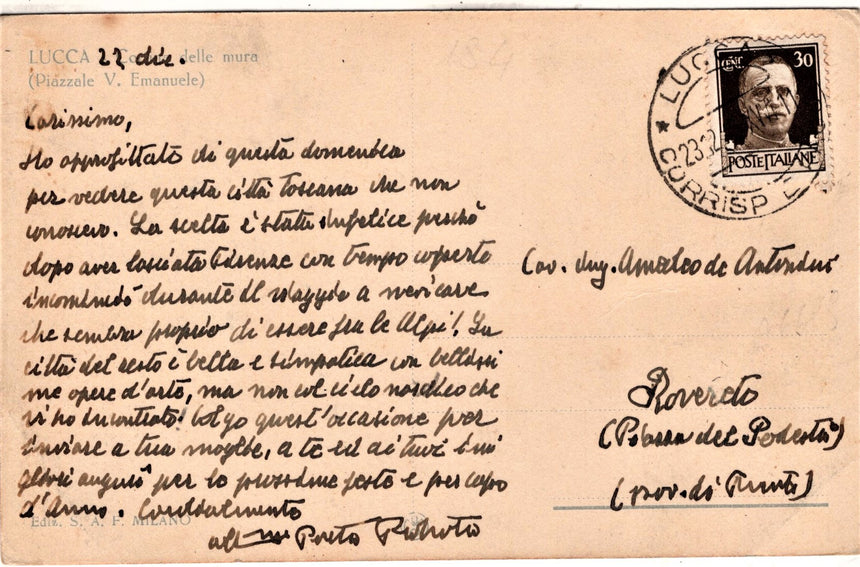 LUCCA 22 dic. delle mura
(Piazzale V. Emanuele)
Carissimo,
Ho approfittato di questa domenica
per vedere questa città toscana che non
conoscevo. La scelta è stata infelice perchè
dopo aver lasciata Firenze con tempo coperto
incominciò durante il viaggio a nevicare
che sembra proprio di essere fra le Alpi! La
città del resto è bella e simpatica con bellissi
me opere d'arte, ma non col cielo nordico che
vi ho incontrato! Colgo quest'occasione per
inviare a tua moglie, a te ed ai tuoi i mi
gliori auguri per le prossime feste e per capo
d'Anno. Cordialmente
Ediz. S. A. F. MILANO
LUCCA
CORRISP
CENT. 30
POSTE ITALIANE
Cav. Ing. Amedeo de Antonini
Rovereto
(Piazza del Podestà)
(prov. di Trento)